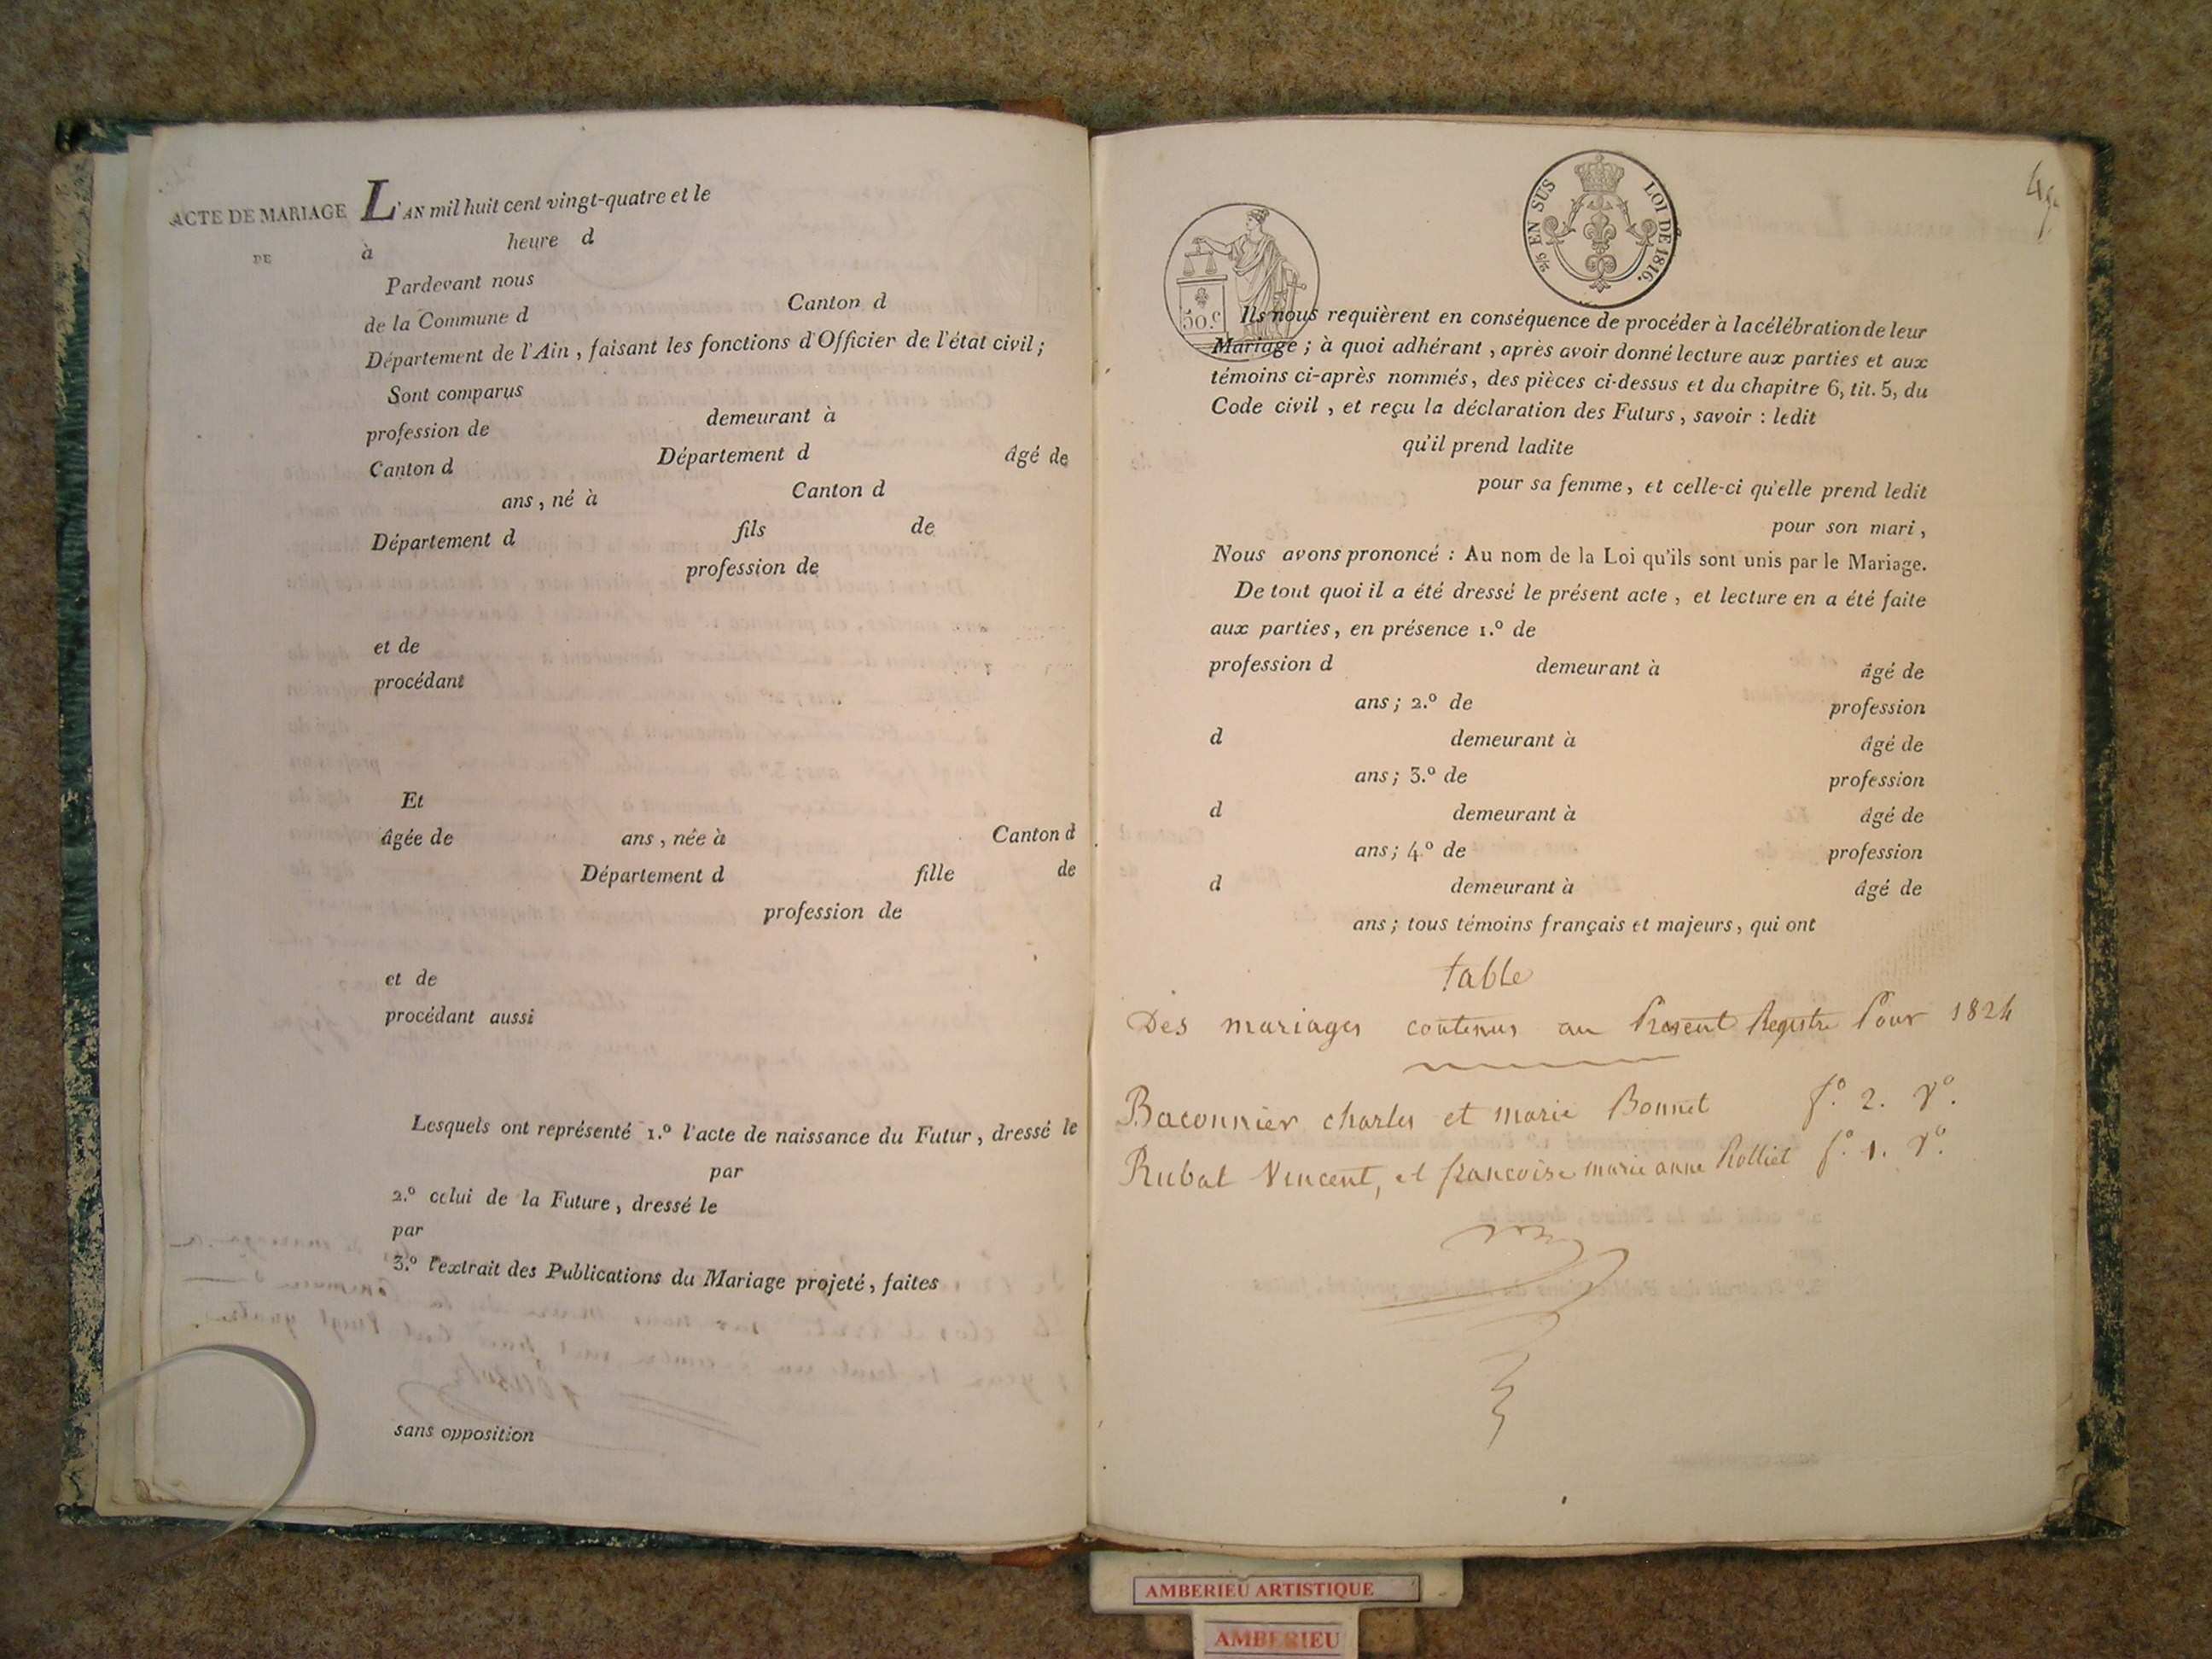 ACTE DE MARIAGE L'AN mil huit cent vingt-quatre et le
DE à heure d
Pardevant nous
de la Commune d Canton d
Département de l'Ain, faisant les fonctions d'Officier de l'état civil;
Sont comparus
profession de demeurant à
Canton d Département d âgé de
ans, né à Canton d
Département d fils de
profession de
et de
procédant
Et
âgée de ans, née à Canton d
Département d fille de
profession de
et de
procédant aussi
Lesquels ont représenté 1.º l'acte de naissance du Futur, dressé le
par
2.º celui de la Future, dressé le
par
3.º l'extrait des Publications du Mariage projeté, faites
sans opposition
50.c
2/5 EN SUS LOI DE 1816.
Ils nous requièrent en conséquence de procéder à la célébration de leur
Mariage; à quoi adhérant, après avoir donné lecture aux parties et aux
témoins ci-après nommés, des pièces ci-dessus et du chapitre 6, tit. 5, du
Code civil, et reçu la déclaration des Futurs, savoir : ledit
qu'il prend ladite
pour sa femme, et celle-ci qu'elle prend ledit
pour son mari,
Nous avons prononcé : Au nom de la Loi qu'ils sont unis par le Mariage.
De tout quoi il a été dressé le présent acte, et lecture en a été faite
aux parties, en présence 1.º de
profession d demeurant à âgé de
ans; 2.º de profession
d demeurant à âgé de
ans; 3.º de profession
d demeurant à âgé de
ans; 4.º de profession
d demeurant à âgé de
ans; tous témoins français et majeurs, qui ont
table
Des mariages contenus au Present Registre Pour 1824
Baconnier charles et marie Bonnet f.º 2. Vº.
Rubat Vincent, et francoise marie anne Rolliet f.º 1. Vº.
AMBERIEU ARTISTIQUE
AMBERIEU